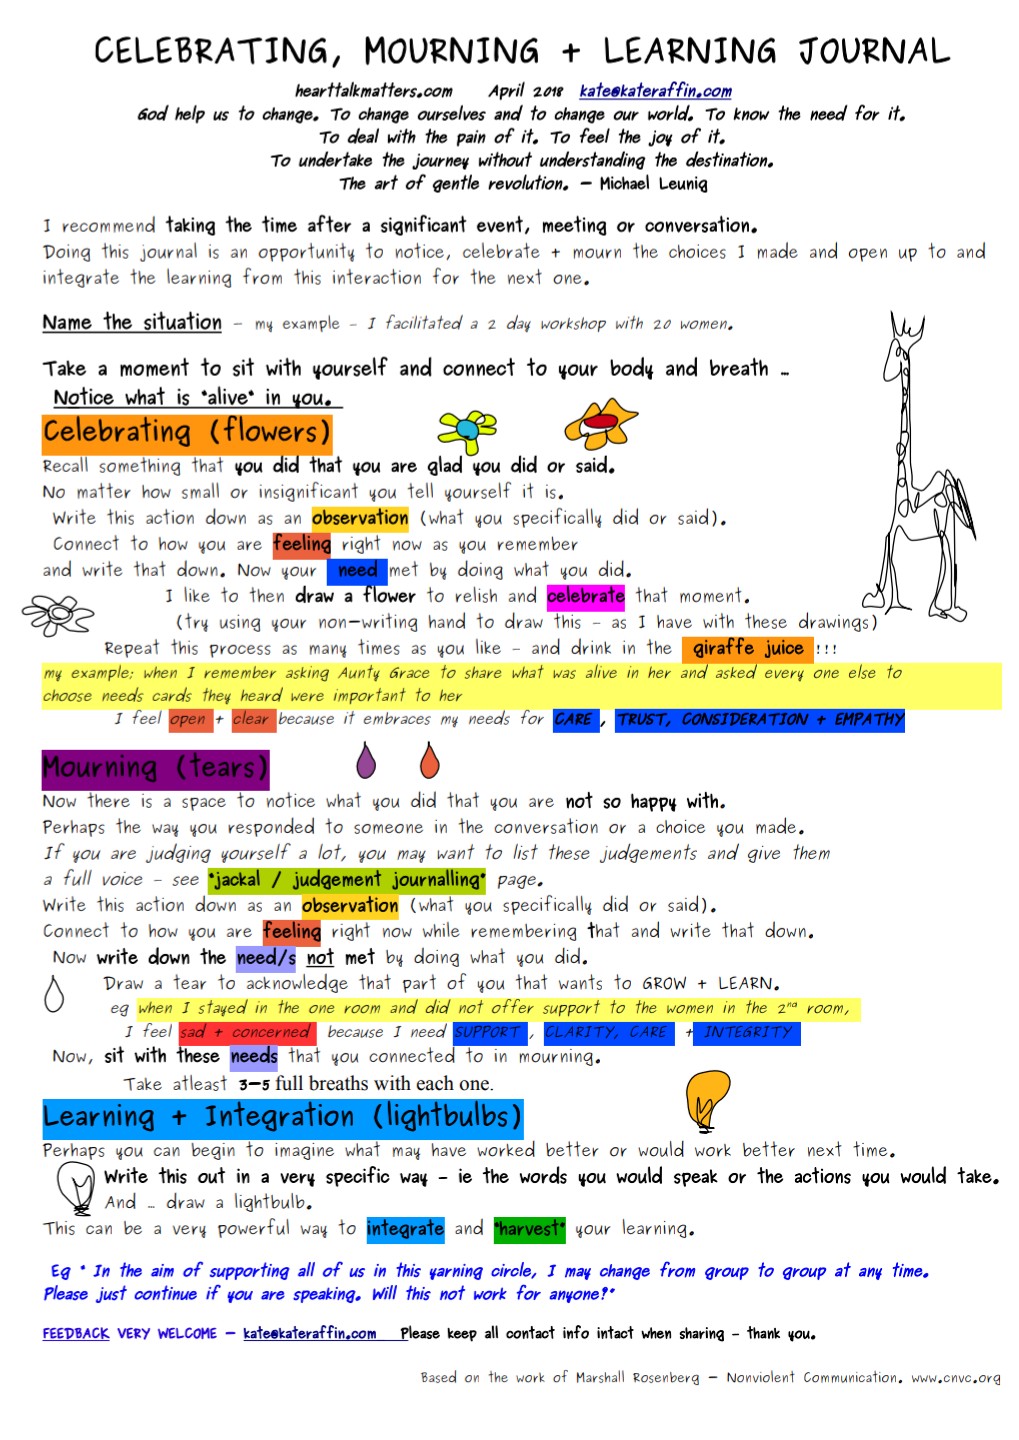 CELEBRATING, MOURNING + LEARNING JOURNAL
hearttalkmatters.com April 2018 kate@kateraffin.com
God help us to change. To change ourselves and to change our world. To know the need for it.
To deal with the pain of it. To feel the joy of it.
To undertake the journey without understanding the destination.
The art of gentle revolution. – Michael Leunig
I recommend taking the time after a significant event, meeting or conversation.
Doing this journal is an opportunity to notice, celebrate + mourn the choices I made and open up to and
integrate the learning from this interaction for the next one.
Name the situation – my example – I facilitated a 2 day workshop with 20 women.
Take a moment to sit with yourself and connect to your body and breath …
Notice what is "alive" in you.
Celebrating (flowers)
Recall something that you did that you are glad you did or said.
No matter how small or insignificant you tell yourself it is.
Write this action down as an observation (what you specifically did or said).
Connect to how you are feeling right now as you remember
and write that down. Now your need met by doing what you did.
I like to then draw a flower to relish and celebrate that moment.
(try using your non-writing hand to draw this – as I have with these drawings)
Repeat this process as many times as you like – and drink in the giraffe juice !!!
my example; when I remember asking Aunty Grace to share what was alive in her and asked every one else to
choose needs cards they heard were important to her
I feel open + clear because it embraces my needs for CARE , TRUST, CONSIDERATION + EMPATHY
Mourning (tears)
Now there is a space to notice what you did that you are not so happy with.
Perhaps the way you responded to someone in the conversation or a choice you made.
If you are judging yourself a lot, you may want to list these judgements and give them
a full voice – see "jackal / judgement journalling" page.
Write this action down as an observation (what you specifically did or said).
Connect to how you are feeling right now while remembering that and write that down.
Now write down the need/s not met by doing what you did.
Draw a tear to acknowledge that part of you that wants to GROW + LEARN.
eg when I stayed in the one room and did not offer support to the women in the 2nd room,
I feel sad + concerned because I need SUPPORT , CLARITY, CARE + INTEGRITY
Now, sit with these needs that you connected to in mourning.
Take atleast 3–5 full breaths with each one.
Learning + Integration (lightbulbs)
Perhaps you can begin to imagine what may have worked better or would work better next time.
Write this out in a very specific way – ie the words you would speak or the actions you would take.
And … draw a lightbulb.
This can be a very powerful way to integrate and "harvest" your learning.
Eg " In the aim of supporting all of us in this yarning circle, I may change from group to group at any time.
Please just continue if you are speaking. Will this not work for anyone?"
FEEDBACK VERY WELCOME – kate@kateraffin.com Please keep all contact info intact when sharing – thank you.
Based on the work of Marshall Rosenberg – Nonviolent Communication. www.cnvc.org